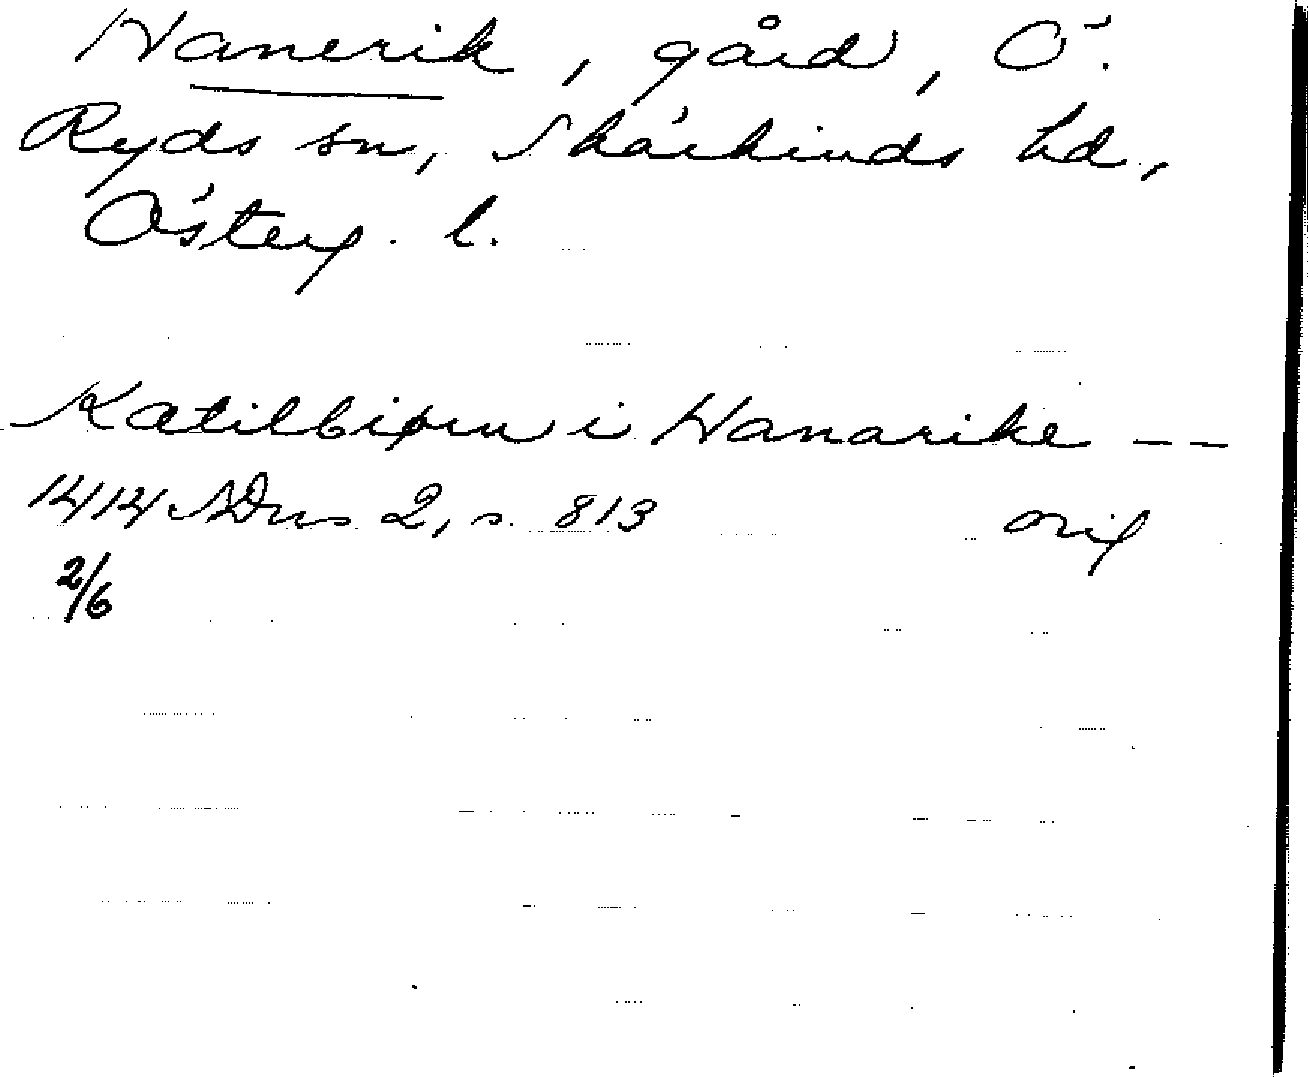 Hanerik, gård, Ö.
Ryds sn, Skärkinds hd,
Österg. l.
Katilbiørn i Hanarike - -
1414 SDns 2, s. 813 orig
2/6